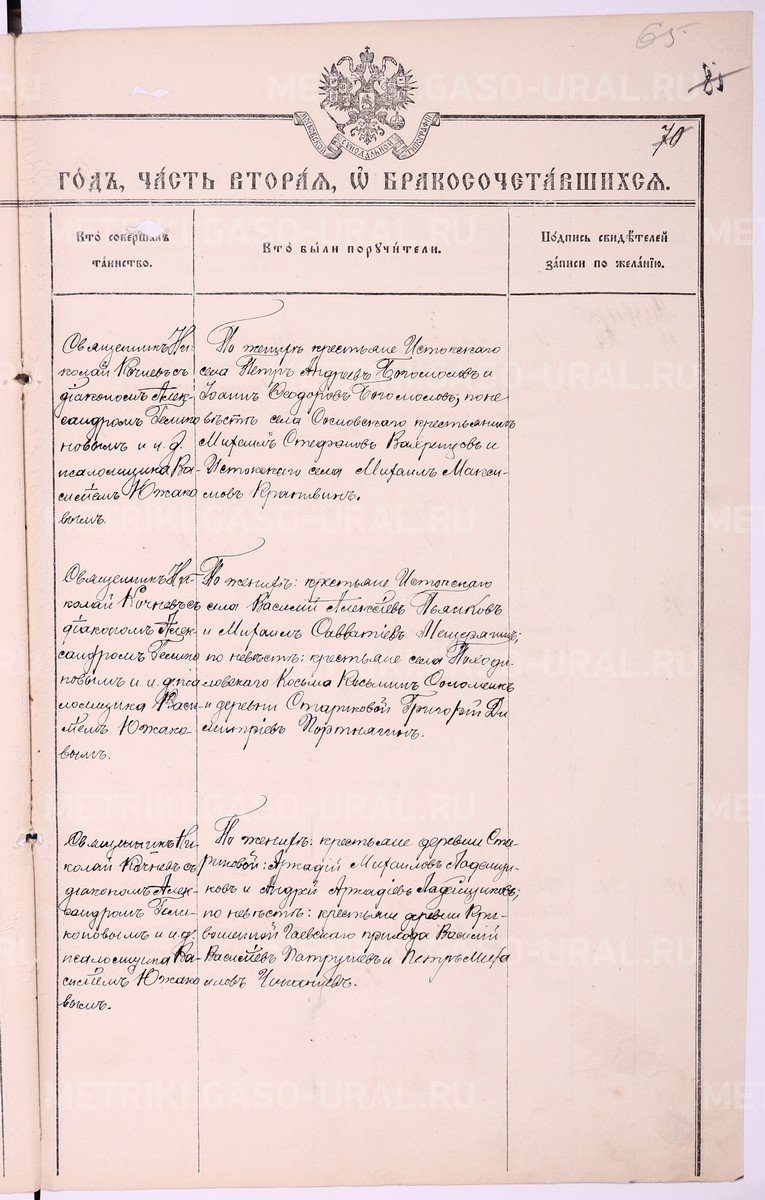 65
85
70
МОСКОВСКОЙ СѴНОДАЛЬНОЙ ТИПОГРАФІИ
ГО́ДЪ, ЧА́СТЬ ВТОРА́Я, Ѽ БРАКОСОЧЕТА́ВШИХСЯ.
Кто̀ соверша́лъ
та́инство.
Кто̀ бы́ли поручи́тели.
По́дпись свидѣ́телей
за́писи по жела́нію.
Священникъ Ни-
колай Кочневъ съ
діакономъ Алек-
сандромъ Гелико
новымъ и и. д.
псаломщика Ва-
силіемъ Южако
вымъ.
По женихѣ крестьяне Истокскаго
села Петръ Андреевъ Богомоловъ и
Іоаннъ Ѳеодоровъ Богомоловъ; по не
вѣстѣ села Сосновскаго крестьянинъ
Михаилъ Стефановъ и
Истокскаго села Михаилъ Макси-
мовъ Крапивинъ.
Священникъ Ни-
колай Кочневъ съ
діакономъ Алек-
сандромъ Гелико
новымъ и и. д. пса
ломщика Васи
ліемъ Южако-
вымъ.
По женихѣ: крестьяне Истокскаго
села Василій Алексѣевъ Пьянковъ
и Михаилъ Савватіевъ Мещерягинъ;
по невѣстѣ: крестьяне села
Косьма Косьминъ
и деревни Стариковой Григорій Ди
митріевъ Портнягинъ.
Священникъ Ни-
колай Кочневъ съ
діакономъ Алек-
сандромъ Гели-
коновымъ и и. д.
псаломщика Ва-
силіемъ Южако
вымъ.
По женихѣ: крестьяне деревни Ста-
риковой: Аркадій Михаиловъ Ладейщи-
ковъ и Андрей Аркадіевъ Ладейщиковъ;
по невѣстѣ: крестьяне деревни
прихода Василій
Василіевъ Патрушевъ и Петръ Миха
иловъ
METRIKI.GASO-URAL.RU